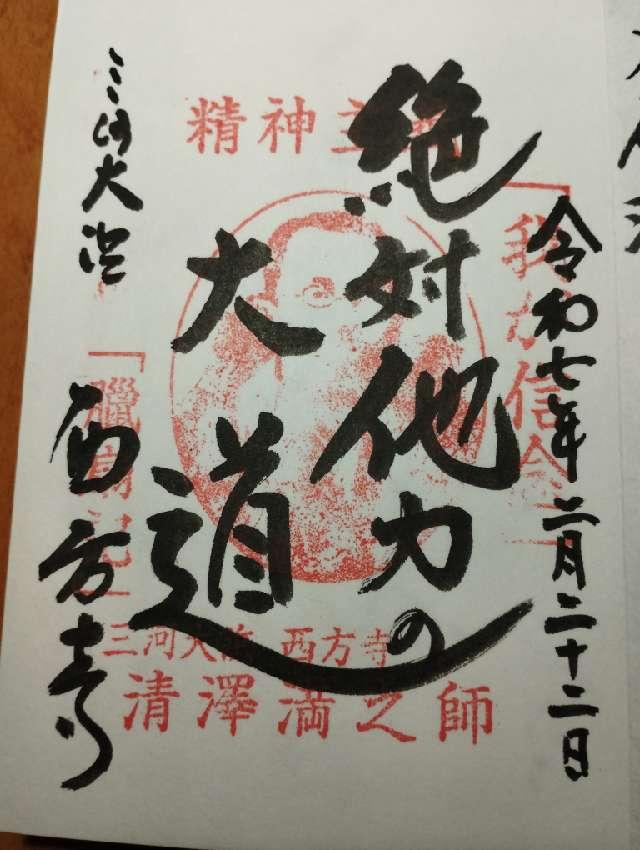 令和七年二月二十二日
絶対他力の
大道
三河大浜
西方寺
精神主
「我が信念」
「臘扇記」
三河大浜 西方寺
清澤満之師